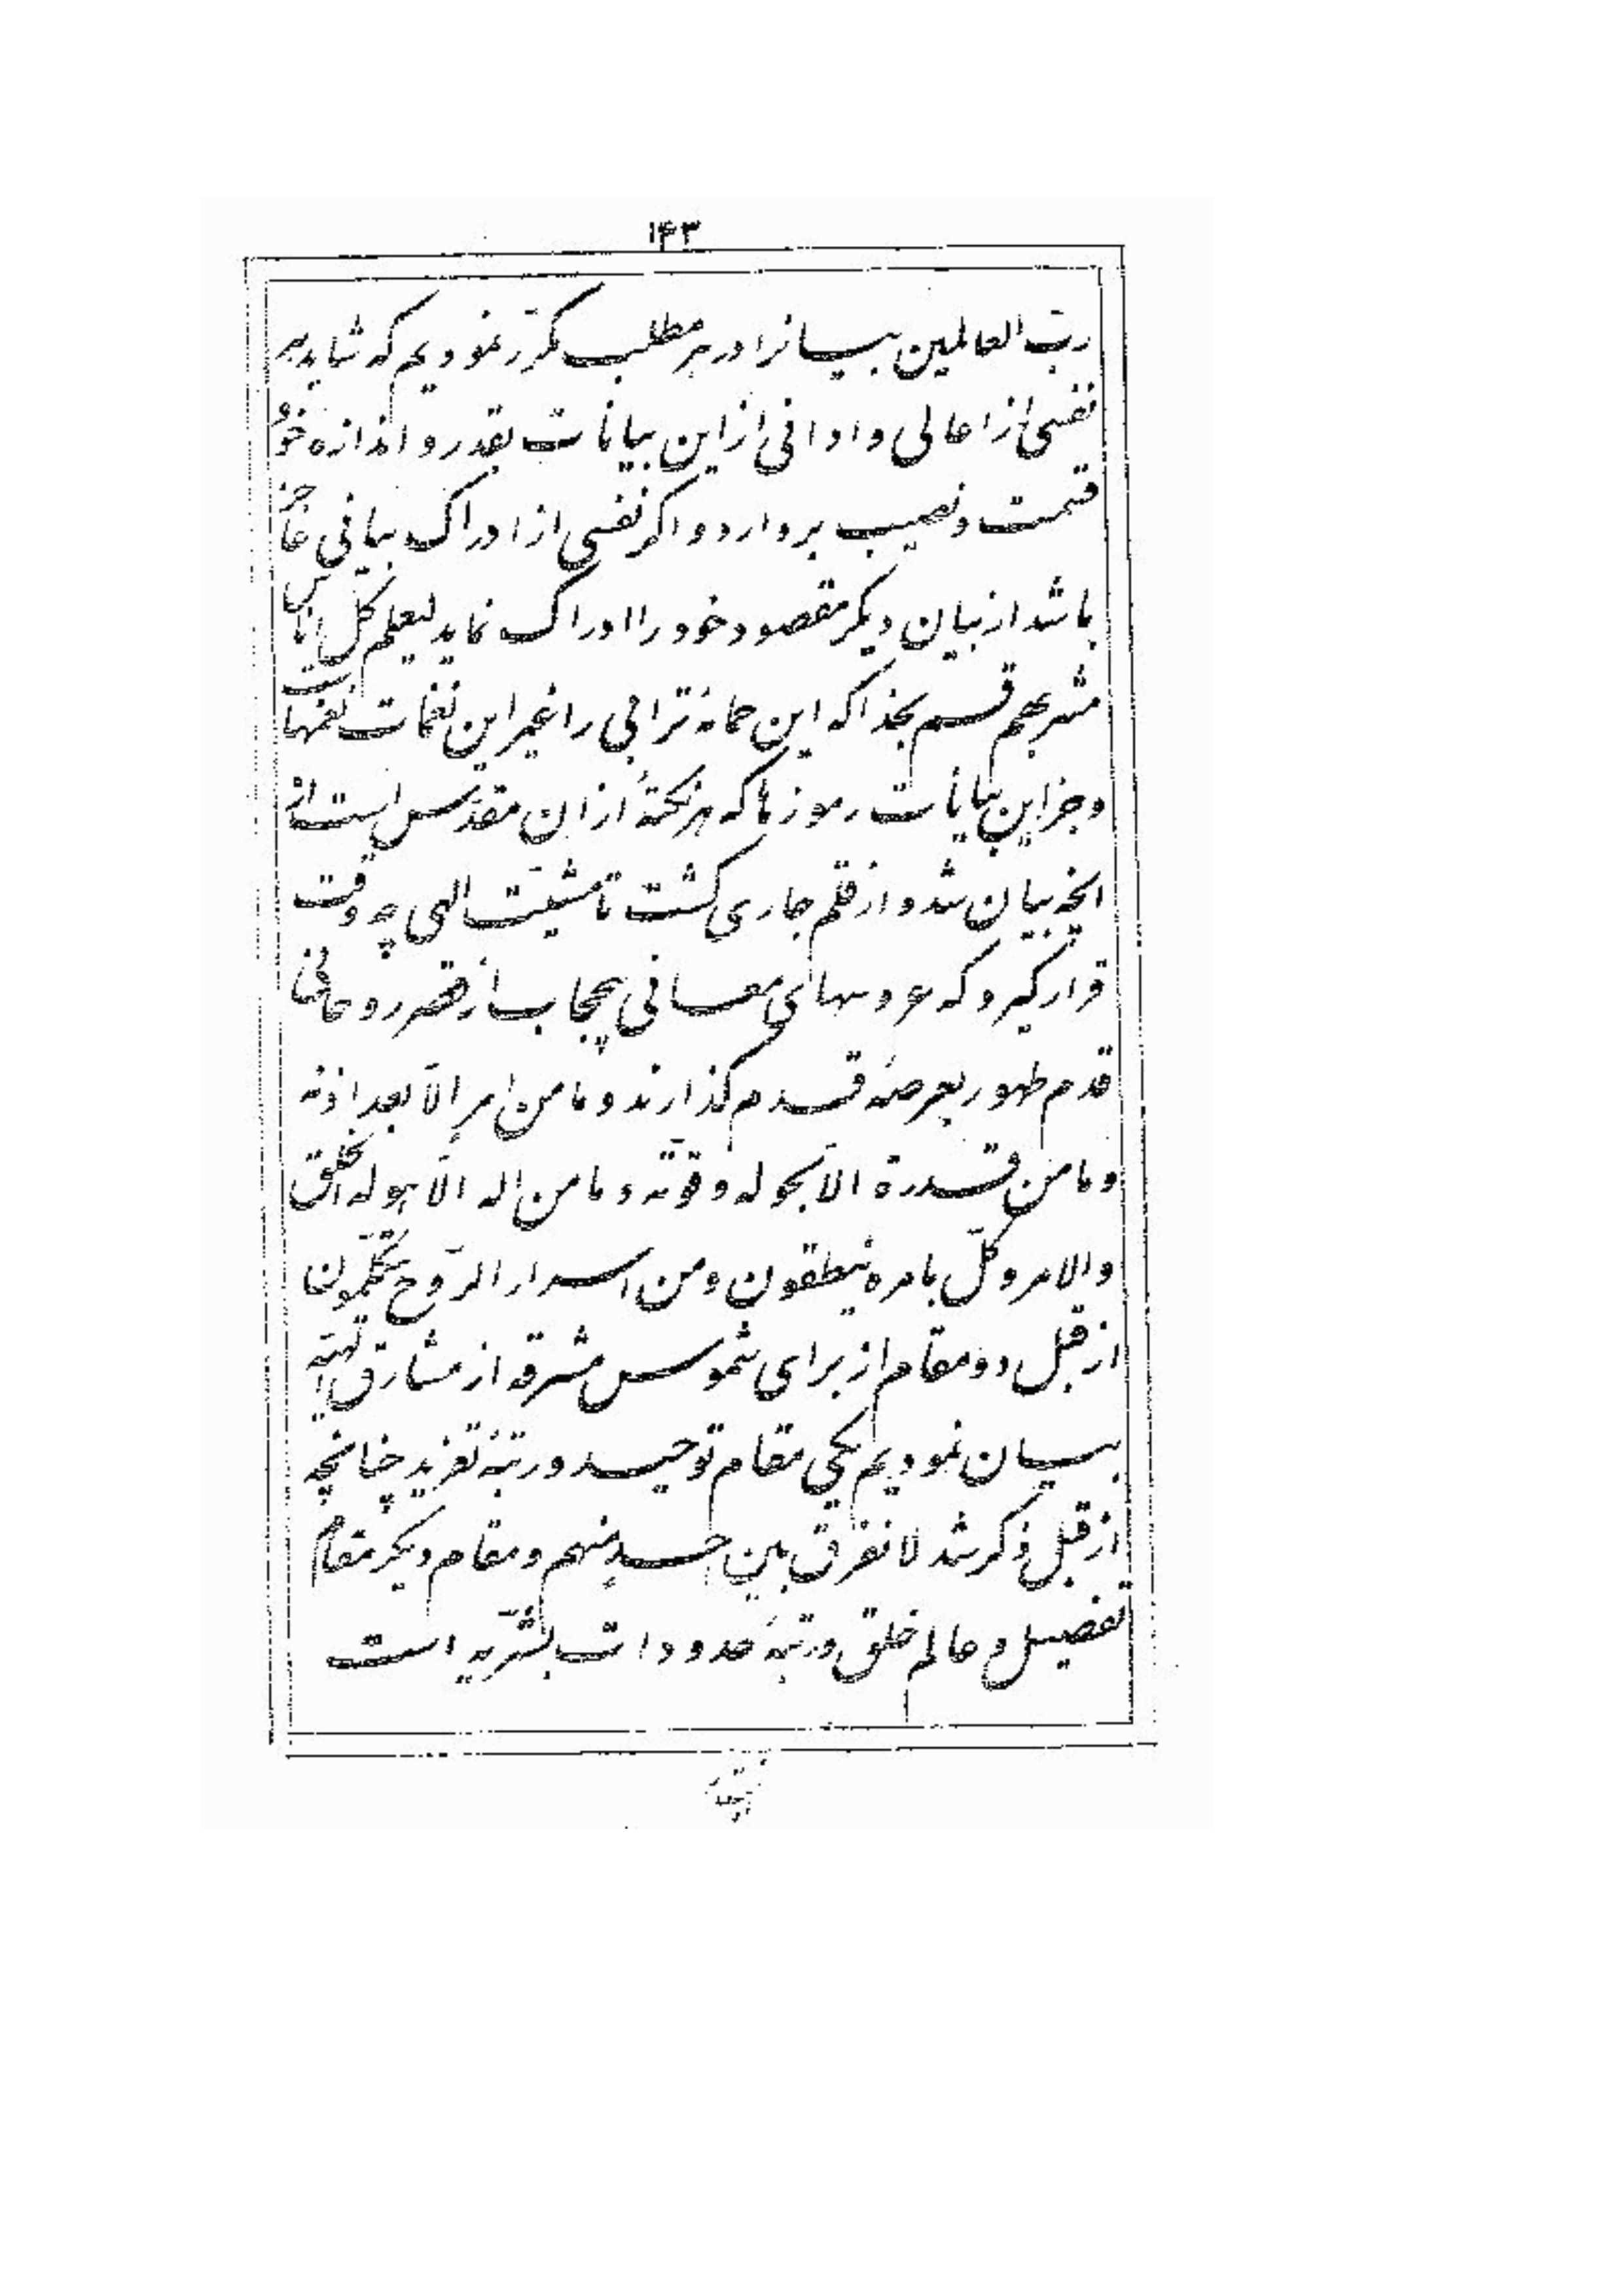 ۱۴۳
ربّ العالمین بیانرا در هر مطلب مکرّر نمودیم که شاید هر
نفسی از اعالی و ادانی از این بیانات بقدر و اندازه خود
قسمت و نصیب بردارد و اگر نفسی از ادراک بیانی عاجز
باشد از بیان دیگر مقصود خود را ادراک نماید لیعلم کلّ اناس
مشربهم قسم بخدا که این حمامه ترابی را غیر این نغمات نغمهاست
و جز این بیانات رموزها که هر نکتهٔ از ان مقدّس است از
انچه بیان شد و از قلم جاری گشت تا مشیّت الهی چه وقت
قرار گیرد که عروسهای معانی بیحجاب از قصر روحانی
قدم ظهور بعرصهٔ قدم گذارند و ما من امر الّا بعد اذنه
و ما من قدرة الّا بحوله و قوّته و ما من اله الّا هو له الخلق
والامر و کلّ بامره ینطقون و من اسرار الرّوح یتکلّمون
از قبل دو مقام از برای شموس مشرقه از مشارق الهیّه
بیان نمودیم یکی مقام توحید و رتبهٔ تفرید چنانچه
از قبل ذکر شد لا نفرّق بین احد منهم و مقام دیگر مقام
تفضیل و عالم خلق و رتبهٔ حدودات بشریّه است